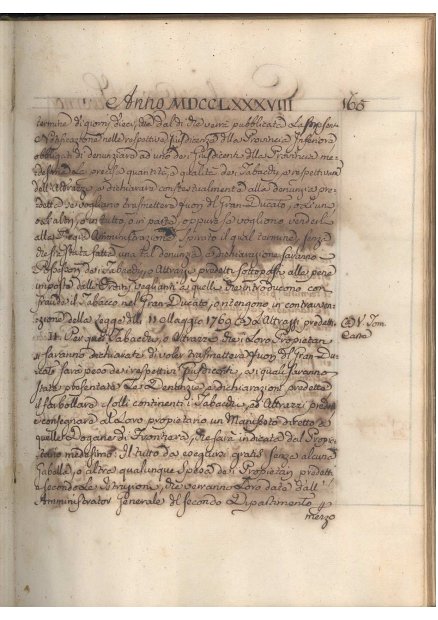 Anno MDCCLXXXVIII 165
termine di giorni dieci, che dal dì che verrà pubblicata la
Notificazione nelle respettive Jusdicenze della Provincia Inferiore
obbligati di denunziare ad uno dei Jusdicenti della Provincia me-
desima la precisa quantità, e qualità dei Tabacchi, e respettivam
dell'Attrazzi, e dichiarare contestualmente alla denunzia pre-
detta se vogliano trasmettere fuori del Gran Ducato, o l'uno
o gl'altri, o in tutto, o in parte, oppure se vogliono venderli
alla Regia Amministrazione. Spirato il qual termine, senza
che sia stata fatta una tal denunzia, e dichiarazione saranno
i Possessori dei Tabacchi, o Attrazzi predetti sottoposti alle pene
imposte dalli Ordini veglianti a quelli che introducono con
fraude il Tabacco nel Gran Ducato, o ritengono in contravven-
zione della Legge dell' 11. Maggio 1769. tali Attrazzi predetti.
II. Per quei Tabacchi, o Attrazzi che i Loro Proprietari
saranno dichiarati di voler trasmettere fuori del Gran Du-
cato sarà peso dei respettivi Jusdicenti, ai quali saranno
state presentate le Denunzie, e dichiarazioni predette
il far bollare i colli continenti i Tabacchi, ed Attrazzi predetti
e consegnare al Loro proprietario un Manifesto diretto a
quella Dogana di Frontiera, che sarà indicata dal Propri-
etario medesimo. Il tutto da eseguirsi gratis senza alcuna
Gabella, o altra qualunque spesa dei Proprietari predetti
e secondo le istruzioni, che verranno Loro date dall'
Amministrator Generale del secondo Dipartimento p
mezzo